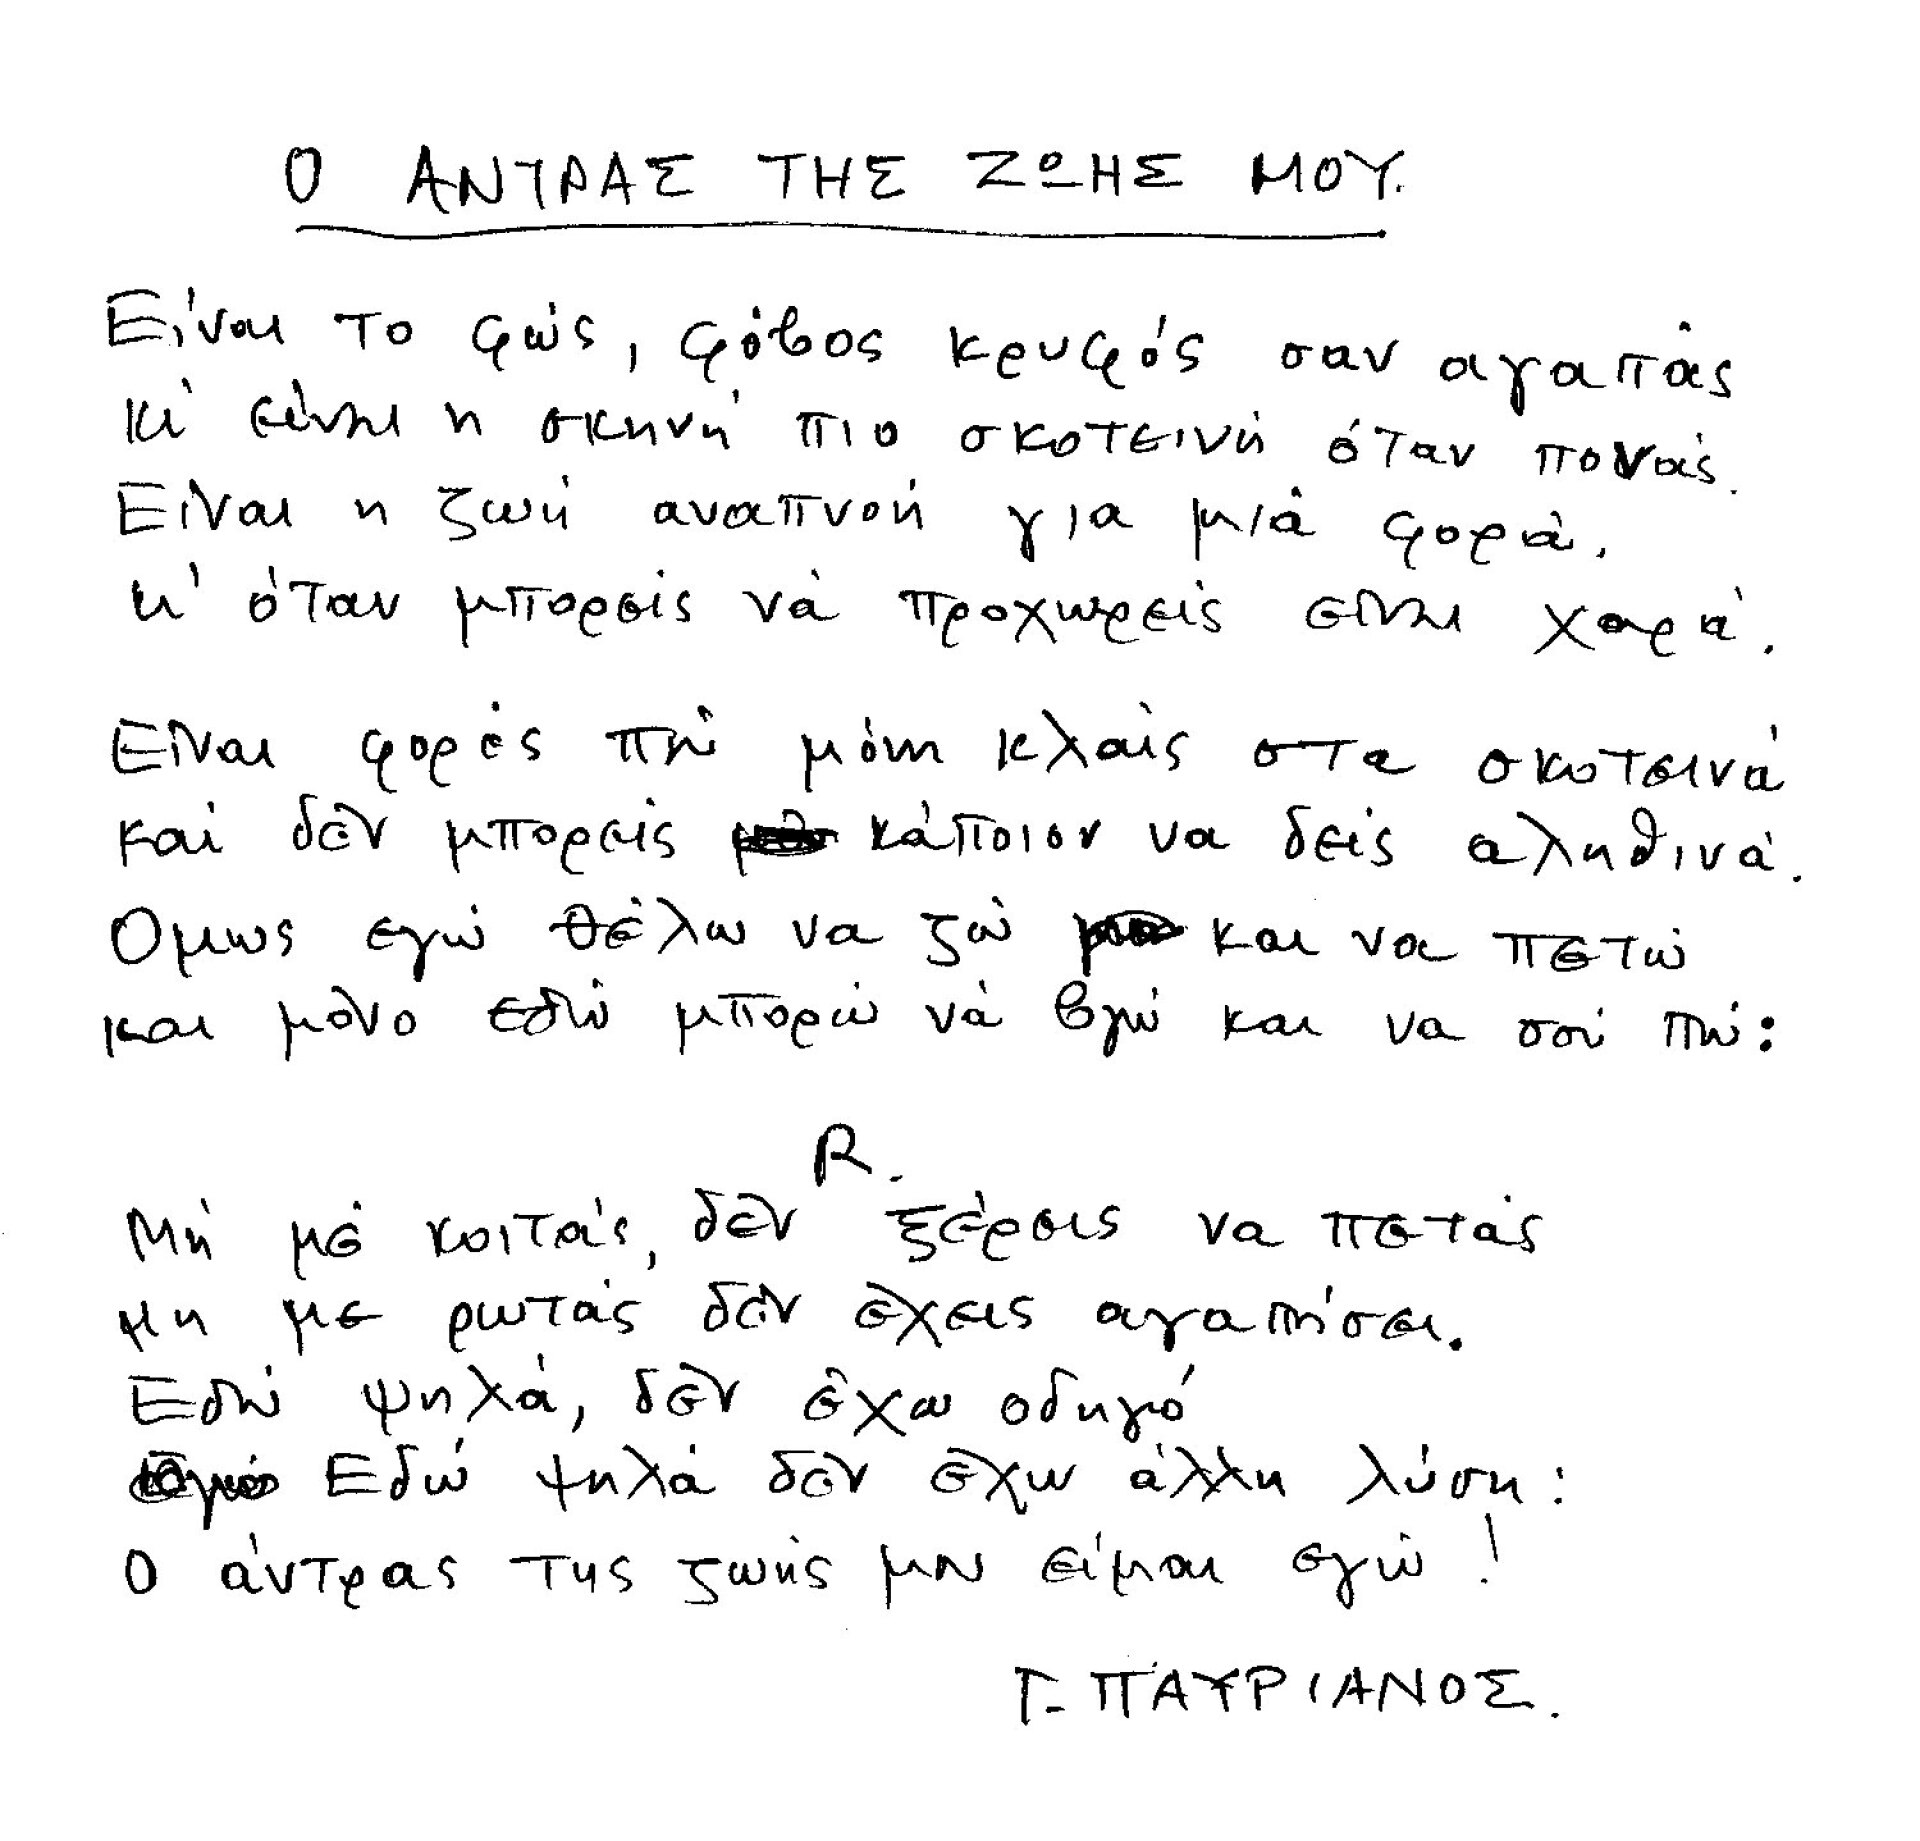 Ο ΑΝΤΡΑΣ ΤΗΣ ΖΩΗΣ ΜΟΥ.
Είναι το φώς, φόβος κρυφός σαν αγαπάς
κι' είναι η σκηνή πιο σκοτεινή όταν πονάς.
Είναι η ζωή αναπνοή για μιά φορά.
κι' όταν μπορείς νά προχωρείς είναι χαρά.
Είναι φορές πού μόνη κλαίς στα σκοτεινά
και δέν μπορείς κάποιον να δείς αληθινά.
Ομως εγώ θέλω να ζώ και να πετώ
και μόνο εδώ μπορώ νά βγώ και να σού πώ:
R.
Μή μέ κοιτάς, δέν ξέρεις να πετάς
μη με ρωτάς δέν έχεις αγαπήσει.
Εδώ ψηλά, δέν έχω οδηγό
Εδώ ψηλά δέν έχω άλλη λύση:
Ο άντρας της ζωής μου είμαι εγώ!
Γ. ΠΑΥΡΙΑΝΟΣ.